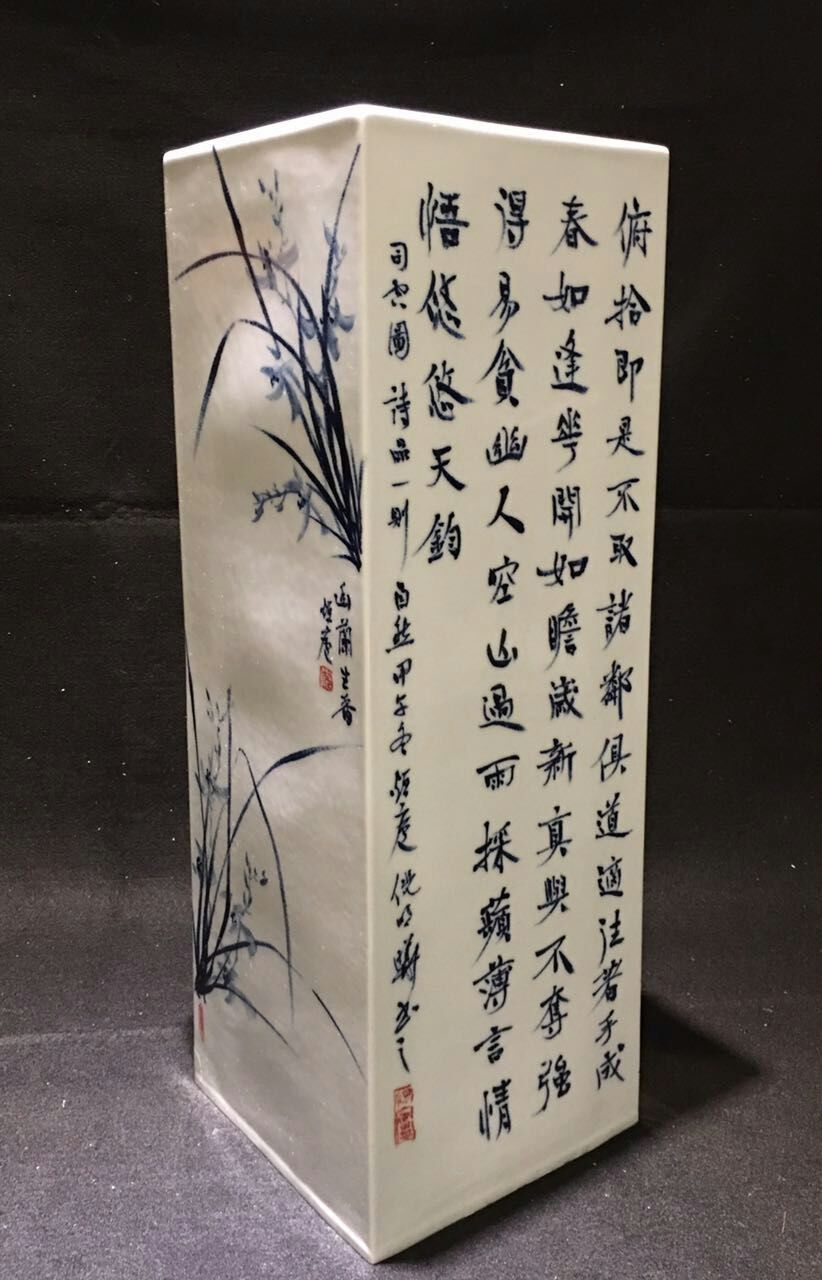 俯拾即是不取諸鄰俱道適往著手成
春如逢花開如瞻歲新真與不奪強
得易貧幽人空山過雨採蘋薄言情
悟悠悠天鈞
司空圖詩品一則 自然甲午冬 書之
幽蘭生香